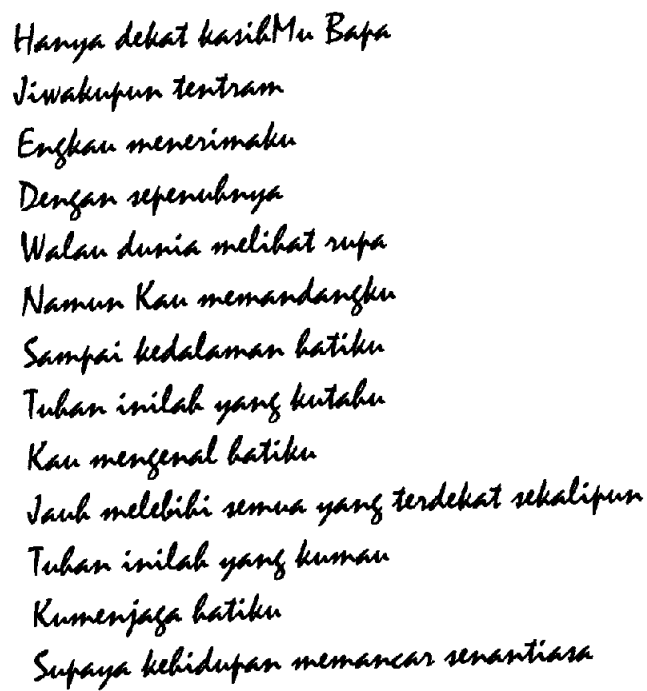 Hanya dekat kasihMu Bapa
Jiwakupun tentram
Engkau menerimaku
Dengan sepenuhnya
Walau dunia melihat rupa
Namun Kau memandangku
Sampai kedalaman hatiku
Tuhan inilah yang kutahu
Kau mengenal hatiku
Jauh melebihi semua yang terdekat sekalipun
Tuhan inilah yang kumau
Kumenjaga hatiku
Supaya kehidupan memancar senantiasa